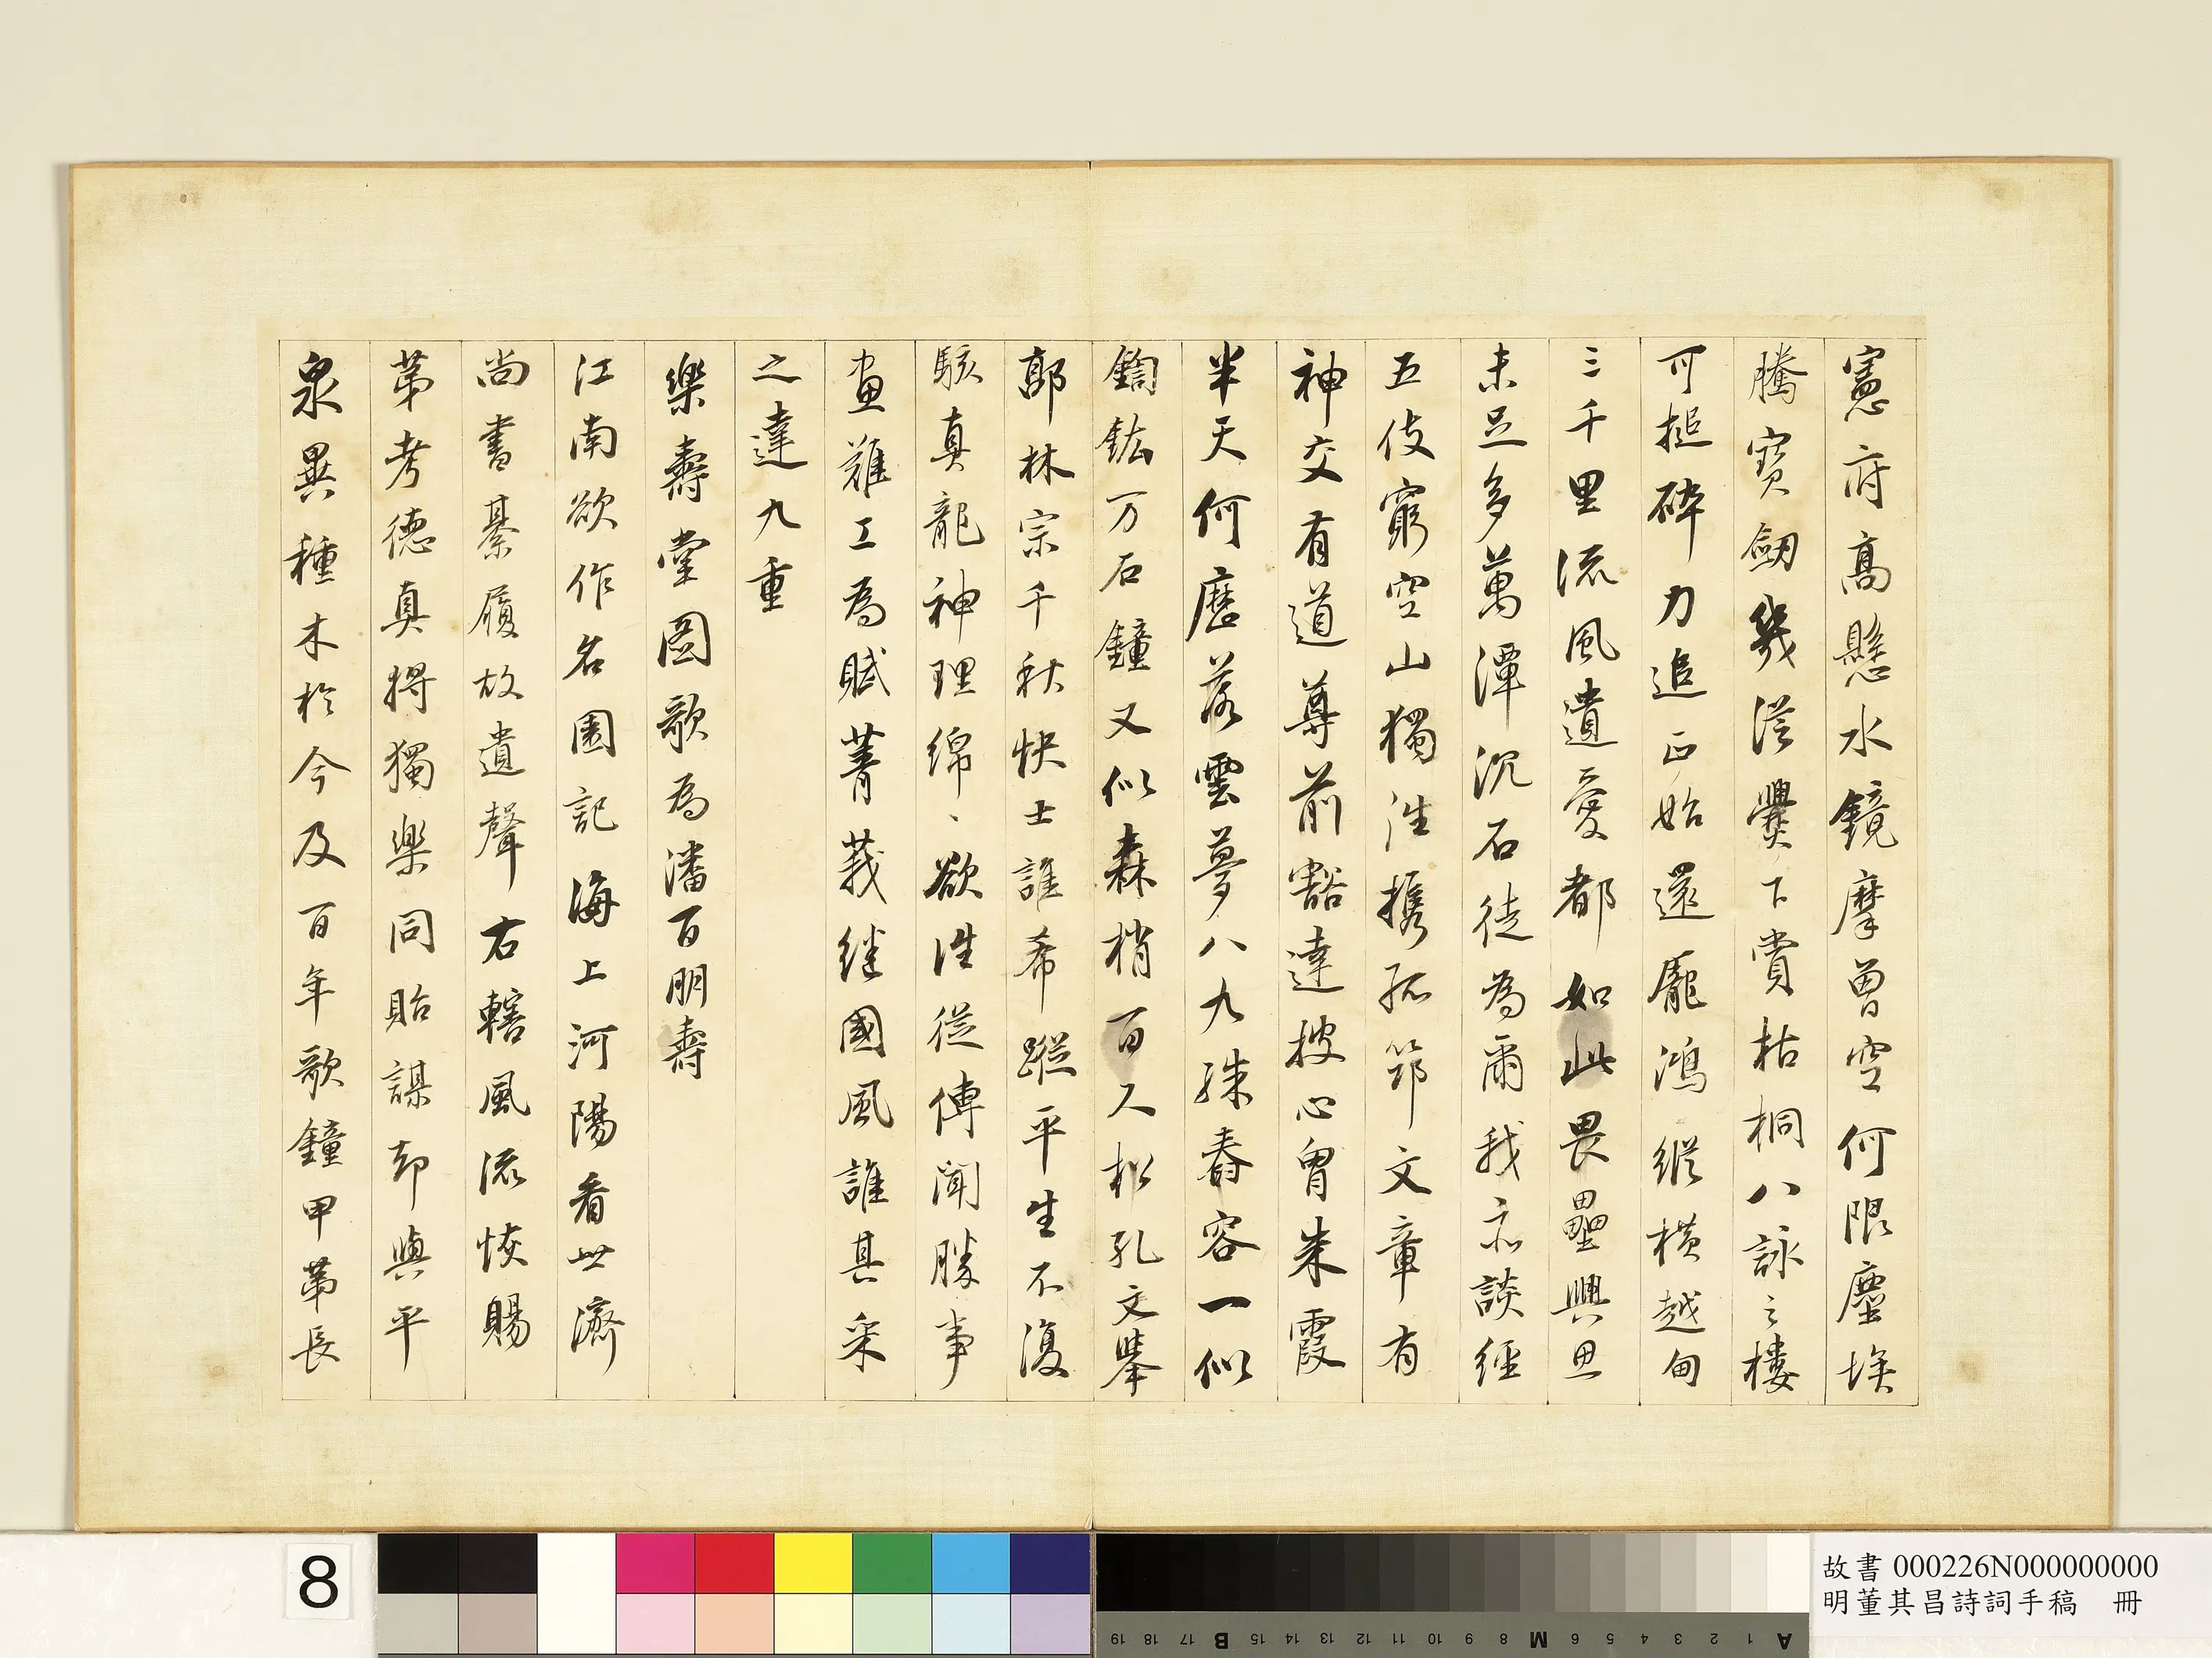 憲府高懸水鏡摩曽空何限塵埃
騰寳劔幾從爨下賞枯桐八詠之樓
可搥碎力追正始還龐鴻縱橫越甸
三千里流風遺愛都如此畏壘興思
未足多萬潭沉石徒為爾我亦談經
五伎窮空山獨往携孤笻文章有
神交有道尊前豁達披心胷朱霞
半天何歷落雲夢八九殊舂容一似
鍧鈜万石鐘又似森梢百尺松孔文舉
郭林宗千秋快士誰希蹤平生不復
駭真龍神理綿、欲往從傳聞勝事
畫難工為賦菁莪継國風誰其采
之達九重
樂壽堂圖歌為潘百朋壽
江南欲作名園記海上河陽看世濟
尚書綦履故遺聲右轄風流恢賜
第考德真將獨樂同貽謀却與平
泉異種木於今及百年歌鐘甲第長
8
故書 000226N000000000
明董其昌詩詞手稿 冊
A 1 2 3 4 5 6 M 8 9 10 11 12 13 14 15 B 17 18 19